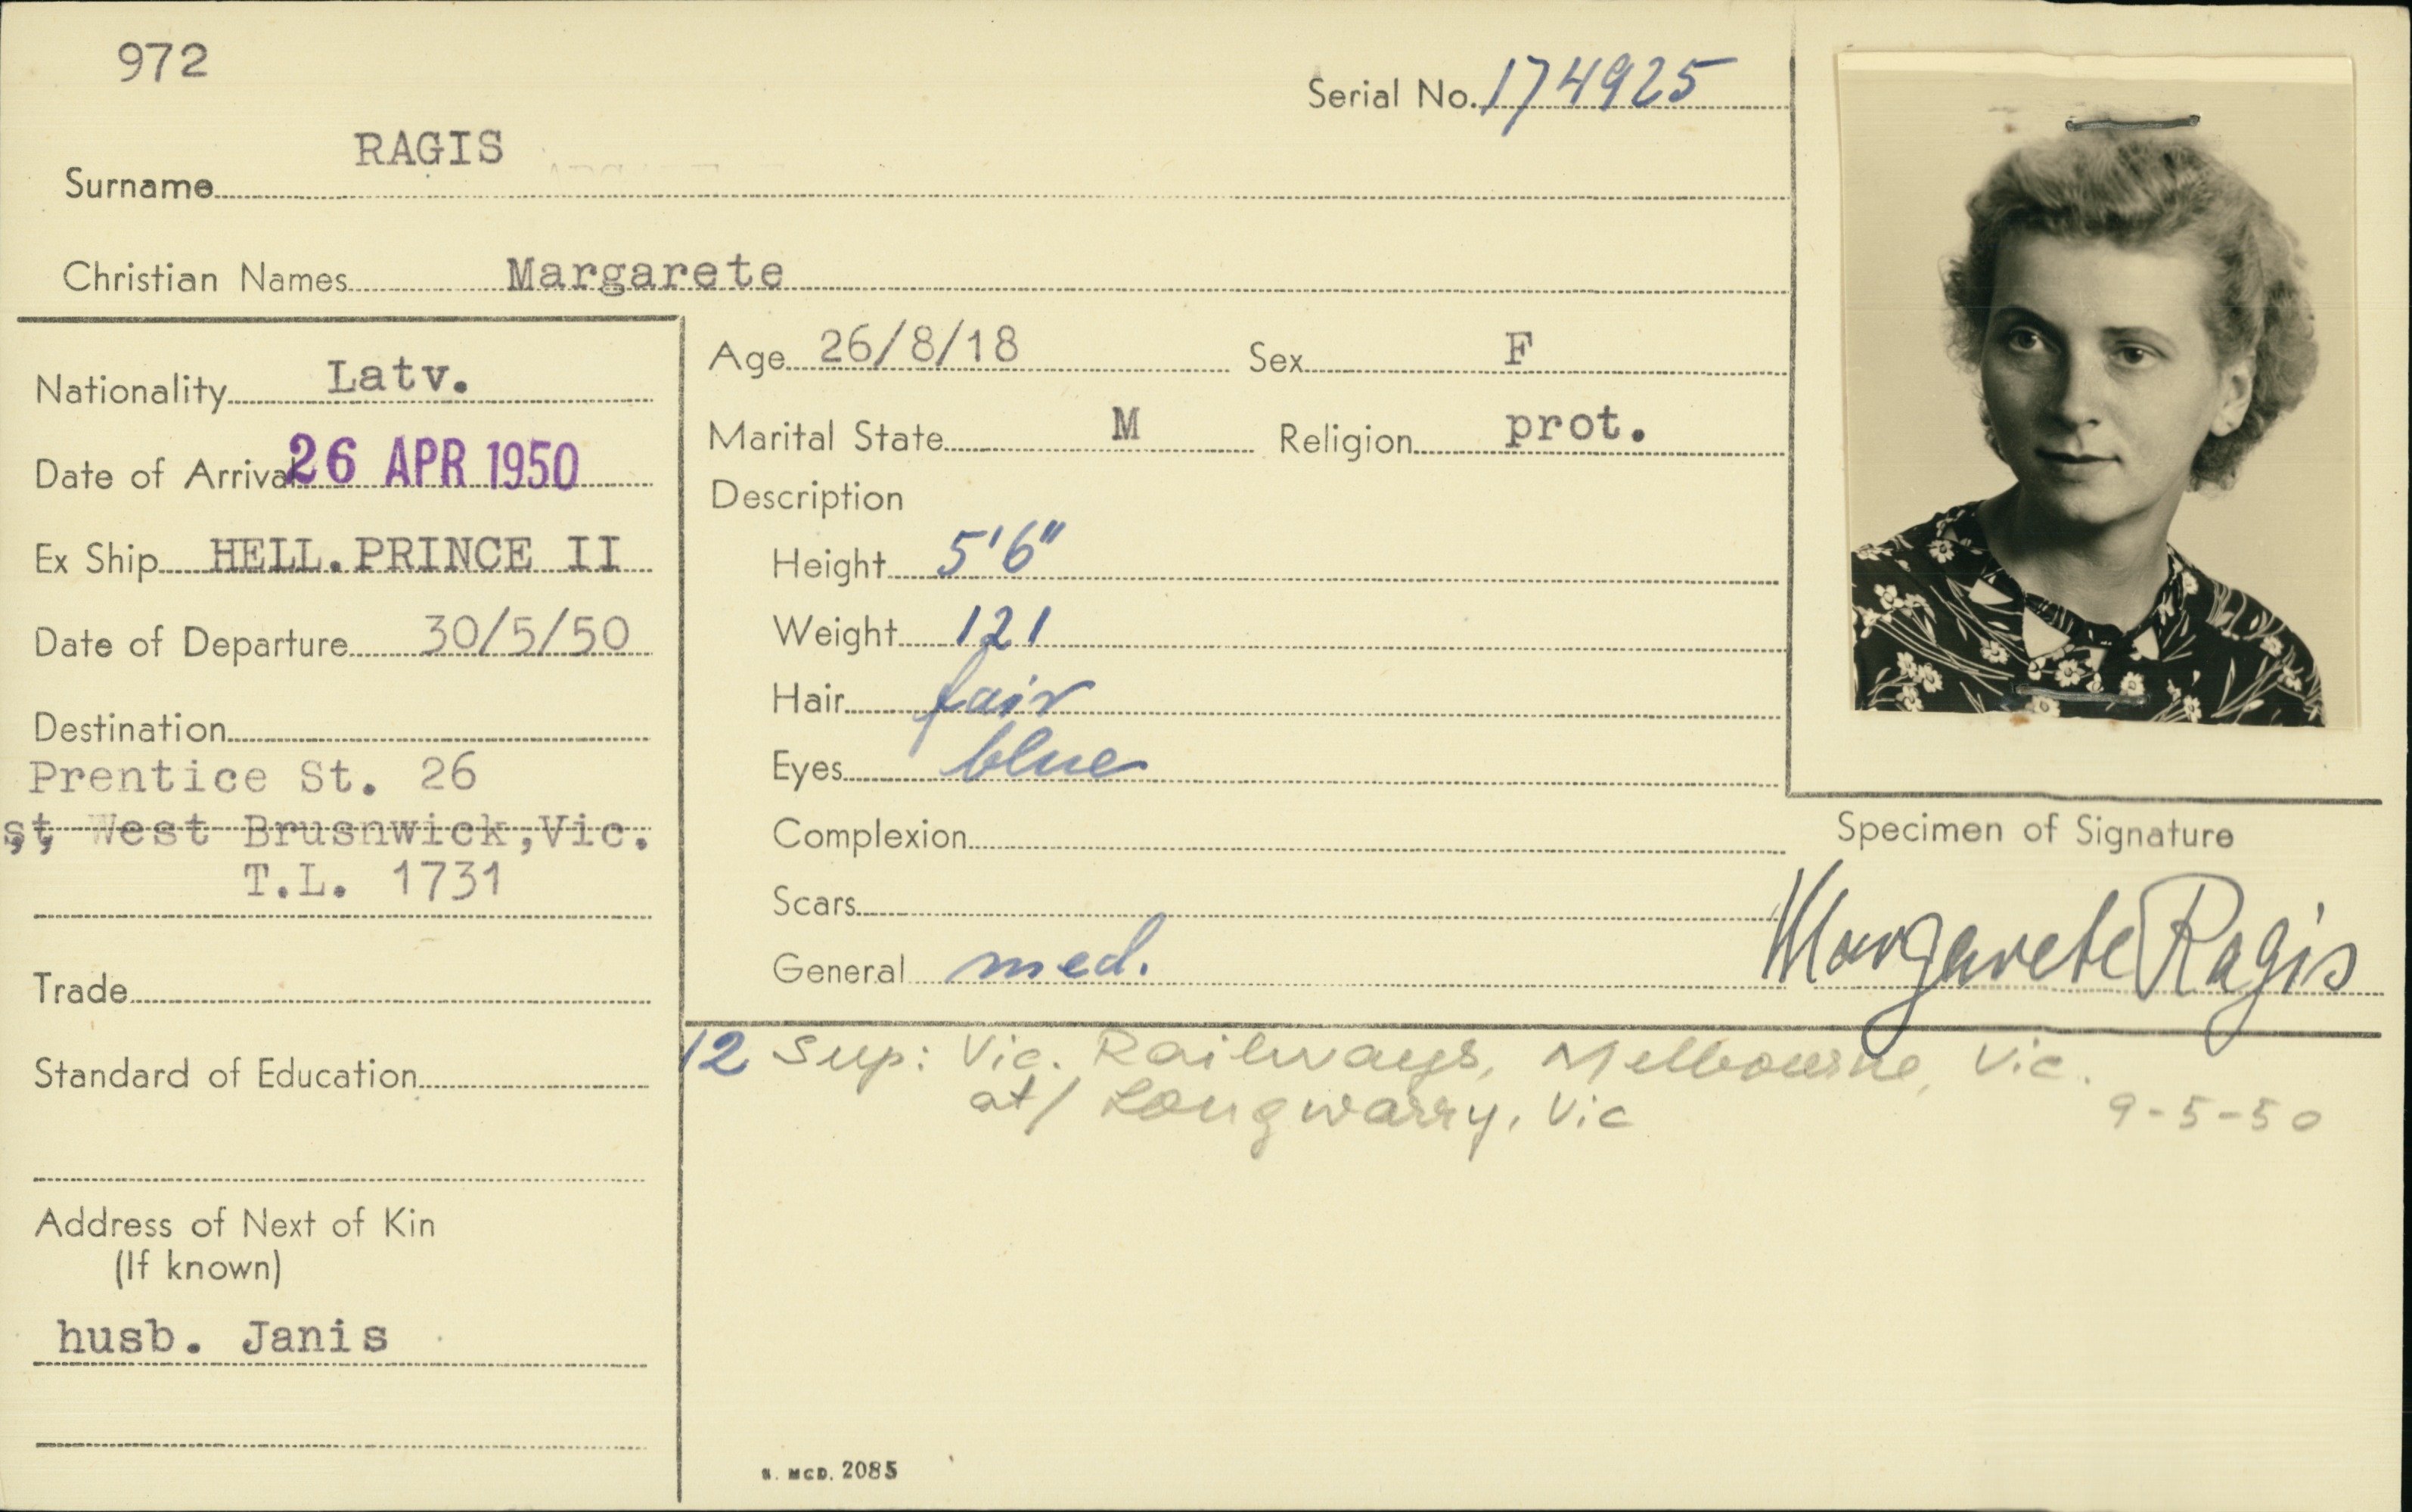 972
Serial No. 174925
Surname RAGIS
Christian Names Margarete
Nationality Latv.
Date of Arrival 26 APR 1950
Ex Ship HELL.PRINCE II
Date of Departure 30/5/50
Destination
Prentice St. 26
st, West Brusnwick,Vic.
T.L. 1731
Trade
Standard of Education
Address of Next of Kin
(If known)
husb. Janis
Age 26/8/18 Sex F
Marital State M Religion prot.
Description
Height 5'6"
Weight 121
Hair fair
Eyes blue
Complexion
Scars
General med.
Specimen of Signature
Margarete Ragis
12 Sup: Vic. Railways, Melbourne, Vic.
at/ Longwarry, Vic
9-5-50
N. MCD. 2085